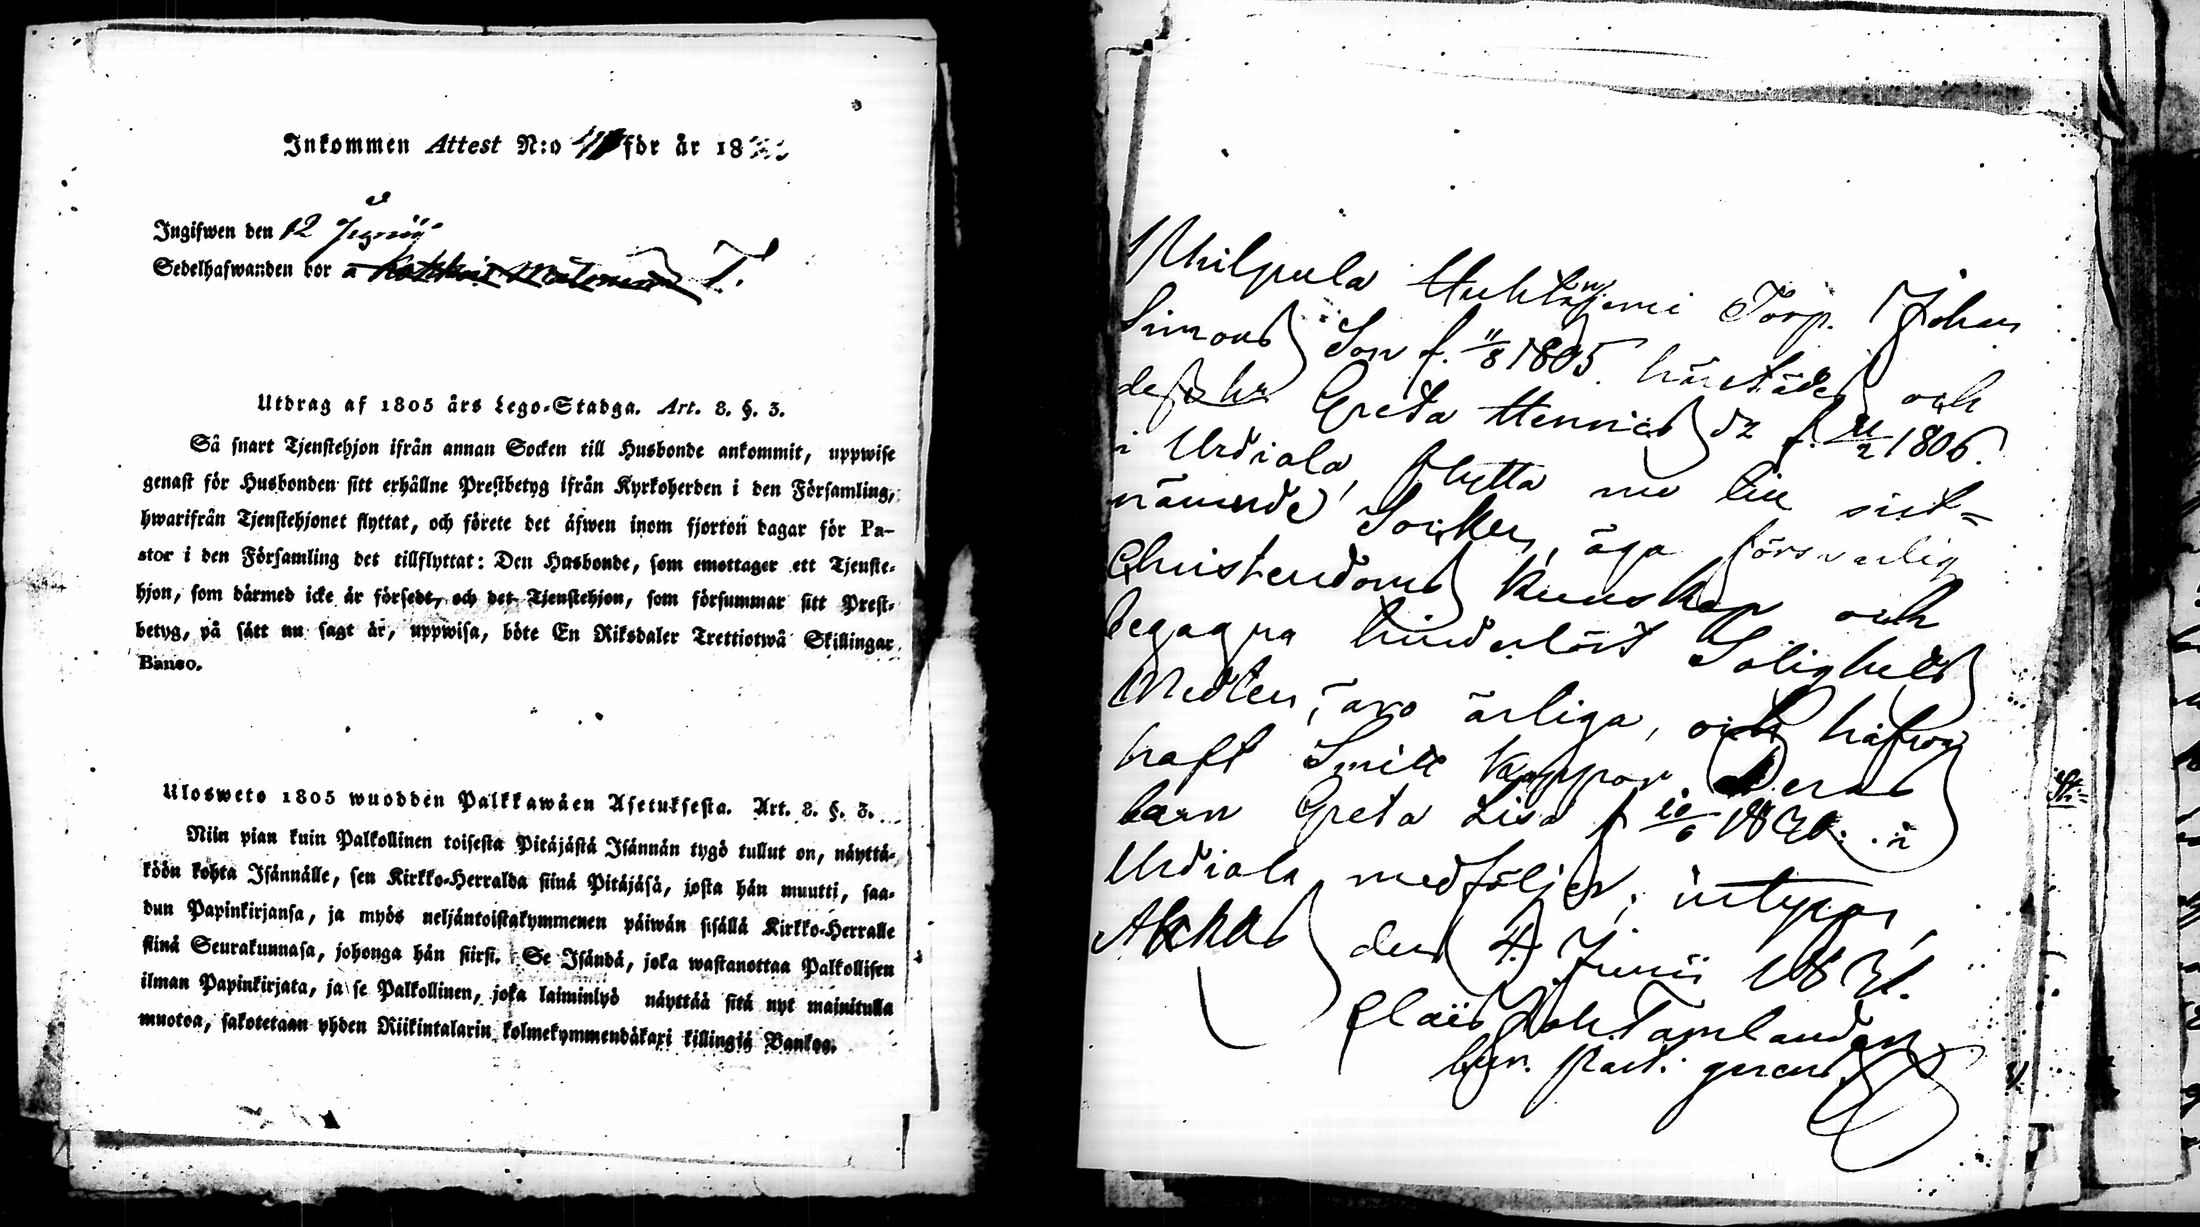 Inkommen Attest N:o för år 18
Ingifwen den 12 Junii
Sedelhafwanden bor å T.
Utdrag af 1805 års Lego-Stadga. Art. 8. §. 3.
Så snart Tjenstehjon ifrån annan Socken till Husbonde ankommit, uppwise
genast för Husbonden sitt erhållne Prestbetyg ifrån Kyrkoherden i den Församling,
hwarifrån Tjenstehjonet flyttat, och förete det äfwen inom fjorton dagar för Pa-
stor i den Församling det tillflyttat: Den Husbonde, som emottager ett Tjenste-
hjon, som därmed icke är försedt, och det Tjenstehjon, som försummar sitt Prest-
betyg, på sätt nu sagt är, uppwisa, böte En Riksdaler Trettiotwå Skillingar
Banco.
Ulosweto 1805 wuodden Palkkawäen Asetuksesta. Art. 8. §. 3.
Niin pian kuin Palkollinen toisesta Pitäjästä Isännän tygö tullut on, näyttä-
köön kohta Isännälle, sen Kirkko-Herralda siinä Pitäjäsä, josta hän muutti, saa-
dun Papinkirjansa, ja myös neljäntoistakymmenen päiwän sisällä Kirkko-Herralle
siinä Seurakunnasa, johonga hän siirsi. Se Isändä, joka wastanottaa Palkollisen
ilman Papinkirjata, ja se Palkollinen, joka laiminlyö näyttää sitä nyt mainitulla
muotoa, sakotetaan yhden Riikintalarin kolmekymmendäkaxi killingiä Bankos.
Torp. Johan
Simons Son f. 11/8 1805. härstädes och
dess hu Greta Henrics dr f. /2 1806.
i Urdiala, flytta nu till sist-
nämnde Socken, äga försvarlig
Christendoms kunskap och
begagna hinderlöst Salighets
Medlen, äro ärliga, och hafva
haft Smitt koppor. Deras
barn Greta Lisa f /6 1830. i
Urdiala medföljer, intygar,
Akkas den 4 Junii 1831.